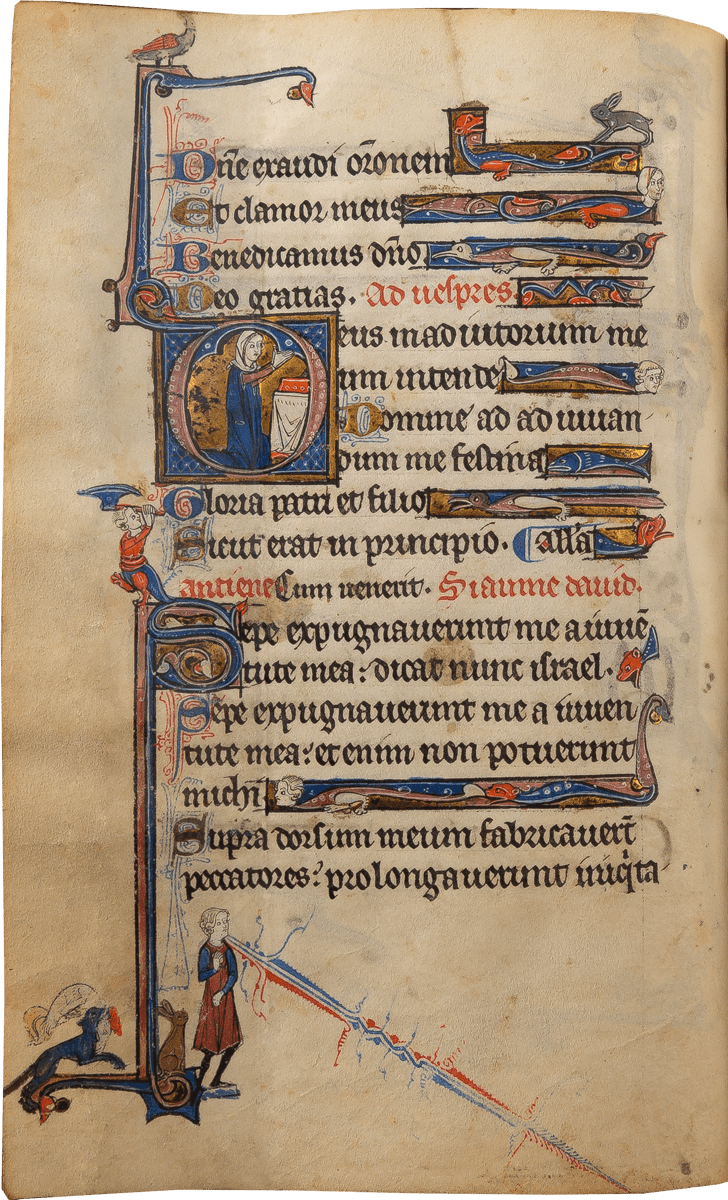 Dn̄e exaudi or̄onem
Et clamor meus
Benedicamus dn̄o
Deo gratias. Ad uespres.
Deus in ad iutorium me
um intende
Domine ad ad iuuan
dum me festina
Gloria patri et filio
Sicut erat in principio. All'a
antiene Cum uenerit. Siaume dauid.
Sepe expugnauerunt me a iuuē
tute mea: dicat nunc israel.
Sepe expugnauerunt me a iuuen
tute mea: etenim non potuerunt
michi
Supra dorsum meum fabricauer̄t
peccatores: prolongauerunt iniq̇ta